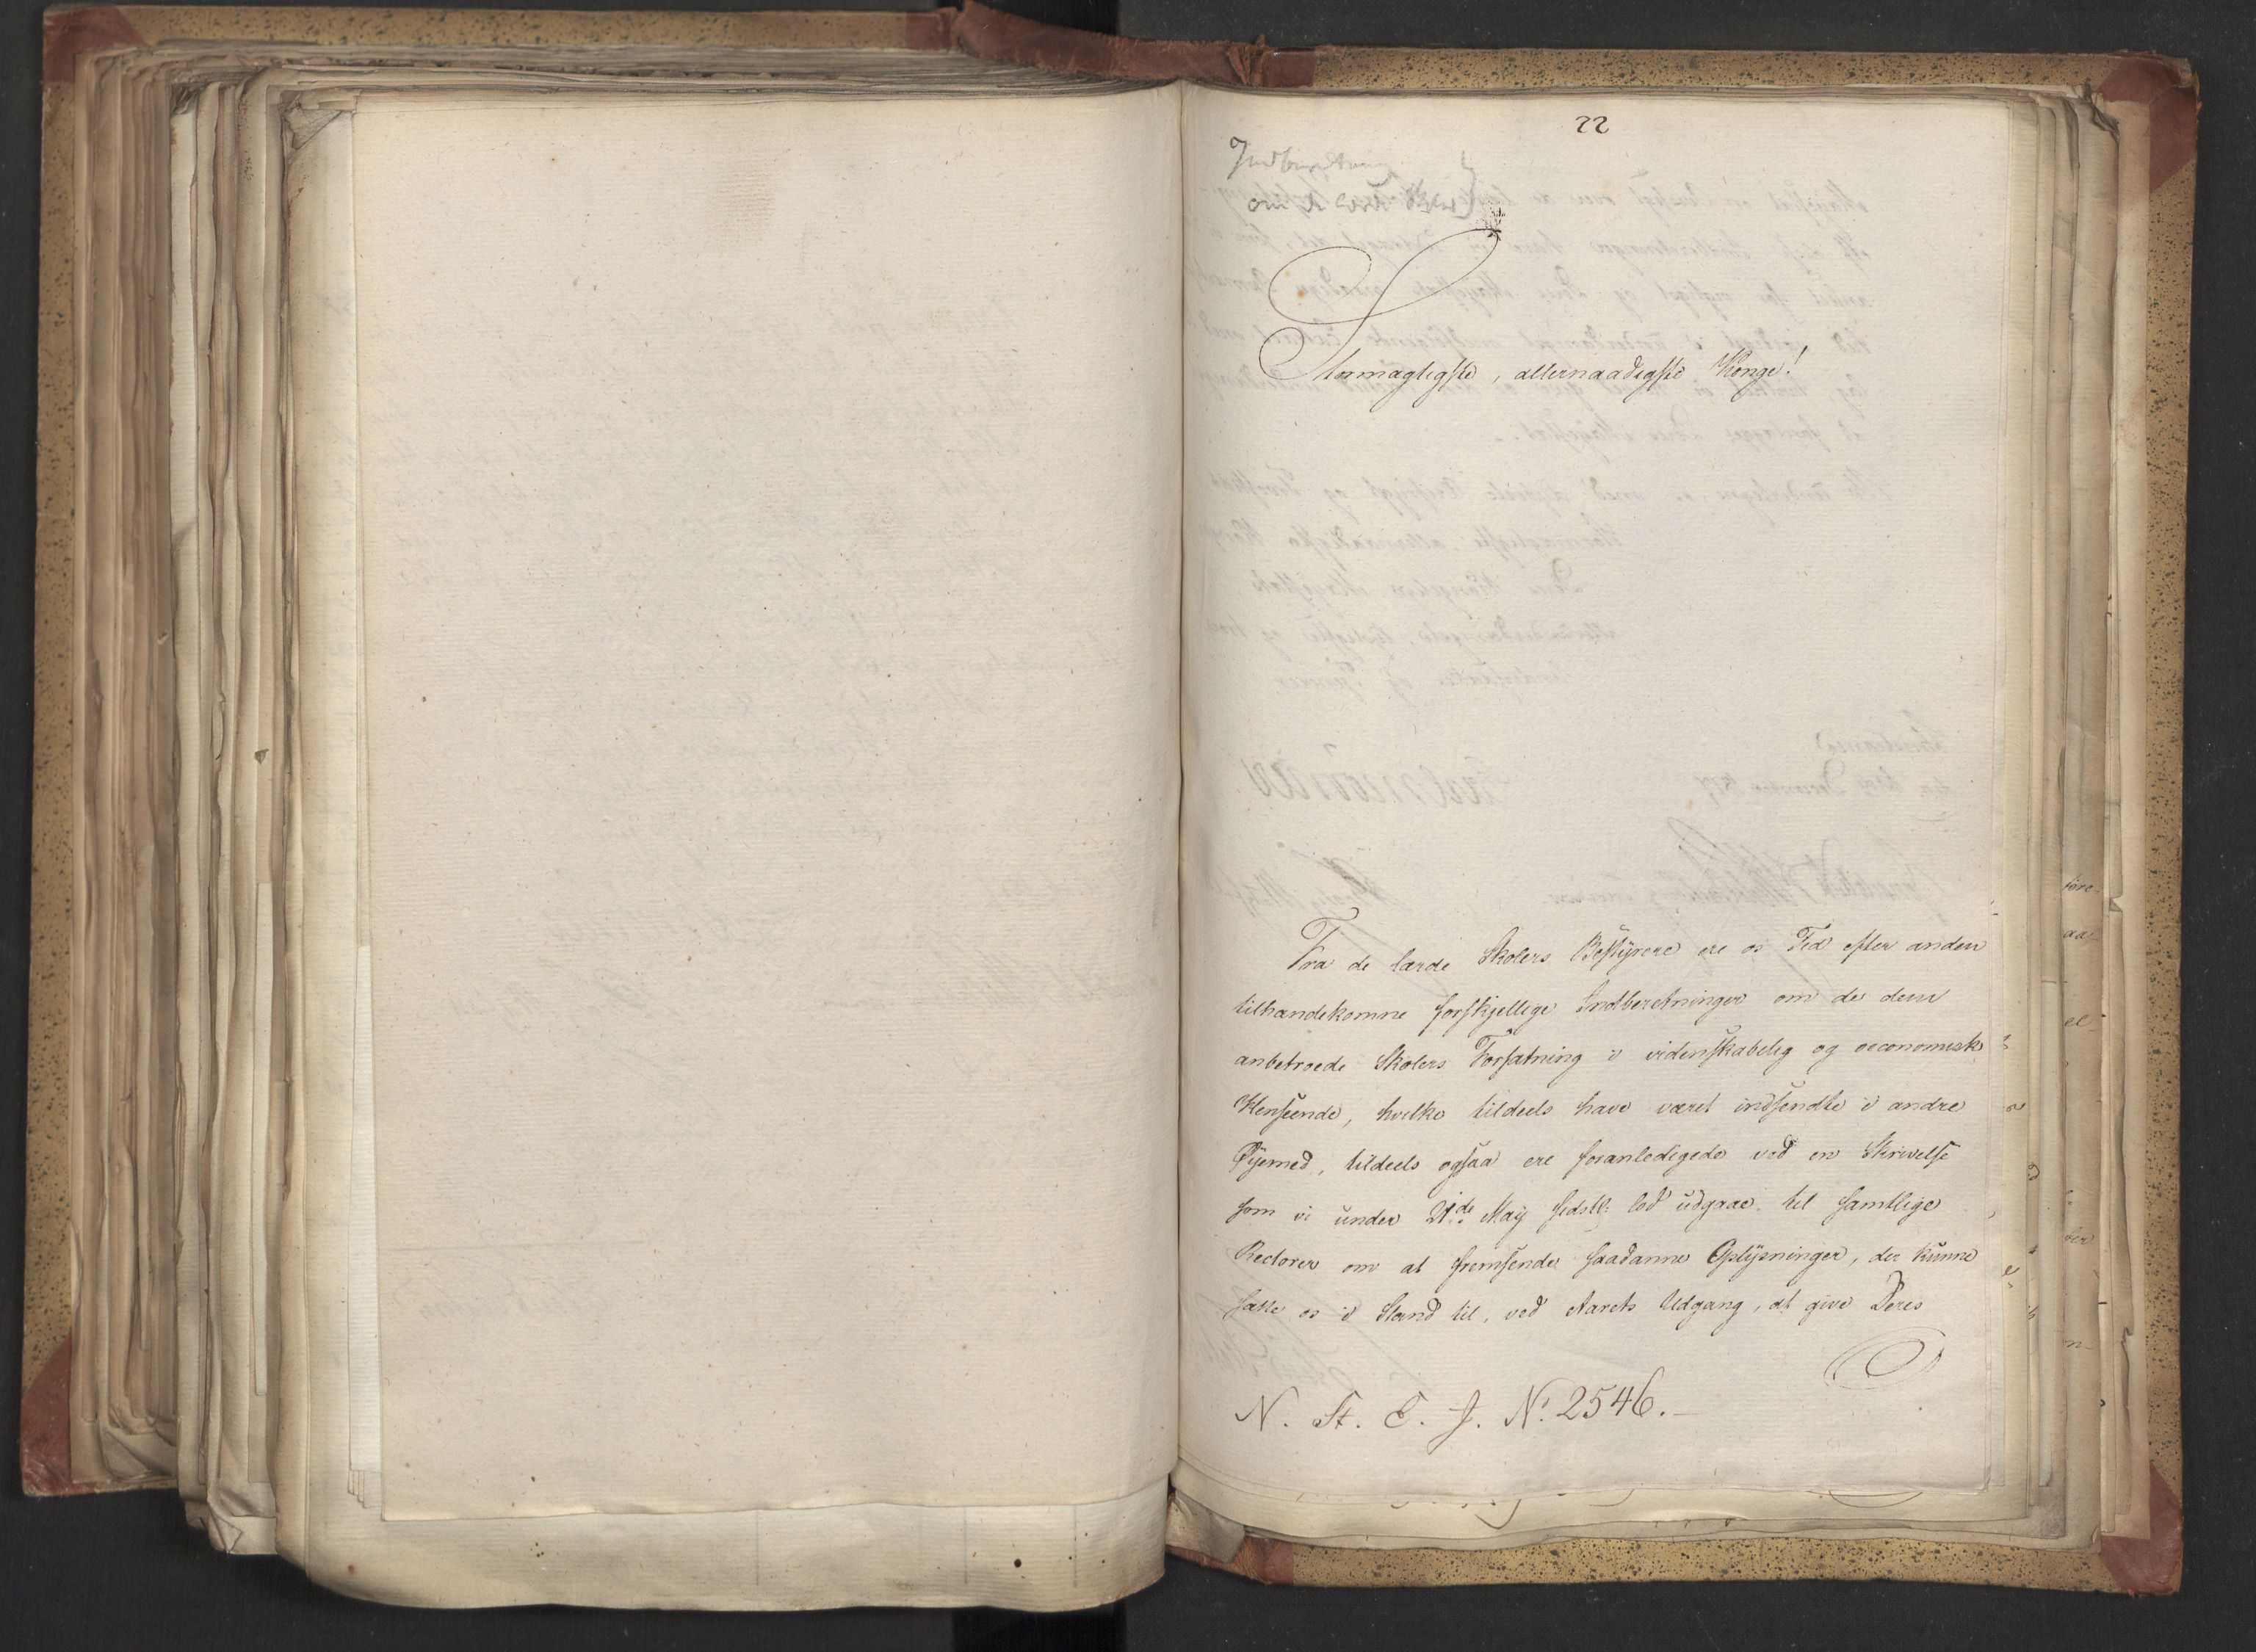 22
Indberetning
om de lærde Skoler
Stormægtigste, allernaadigste Konge!
Fra de lærde Skolers Bestÿrere ere os Tid efter anden
tilhændekomne forskjellige Indberetninger om de dem
anbetroede Skolers Forfatning i videnskabelig og oeconomisk
Henseende, hvilke tildeels have været indsendte i andre
Øjemed, tildeels ogsaa ere foranledigede ved en Skrivelse
som vi under 21de Maÿ sidstl: lod udgaae til samtlige
Rectorer om at fremsende saadanne Oplÿsninger, der kunne
sætte os i Stand til, ved Aarets Udgang, at give Deres
N. St. E. J. No. 2546.